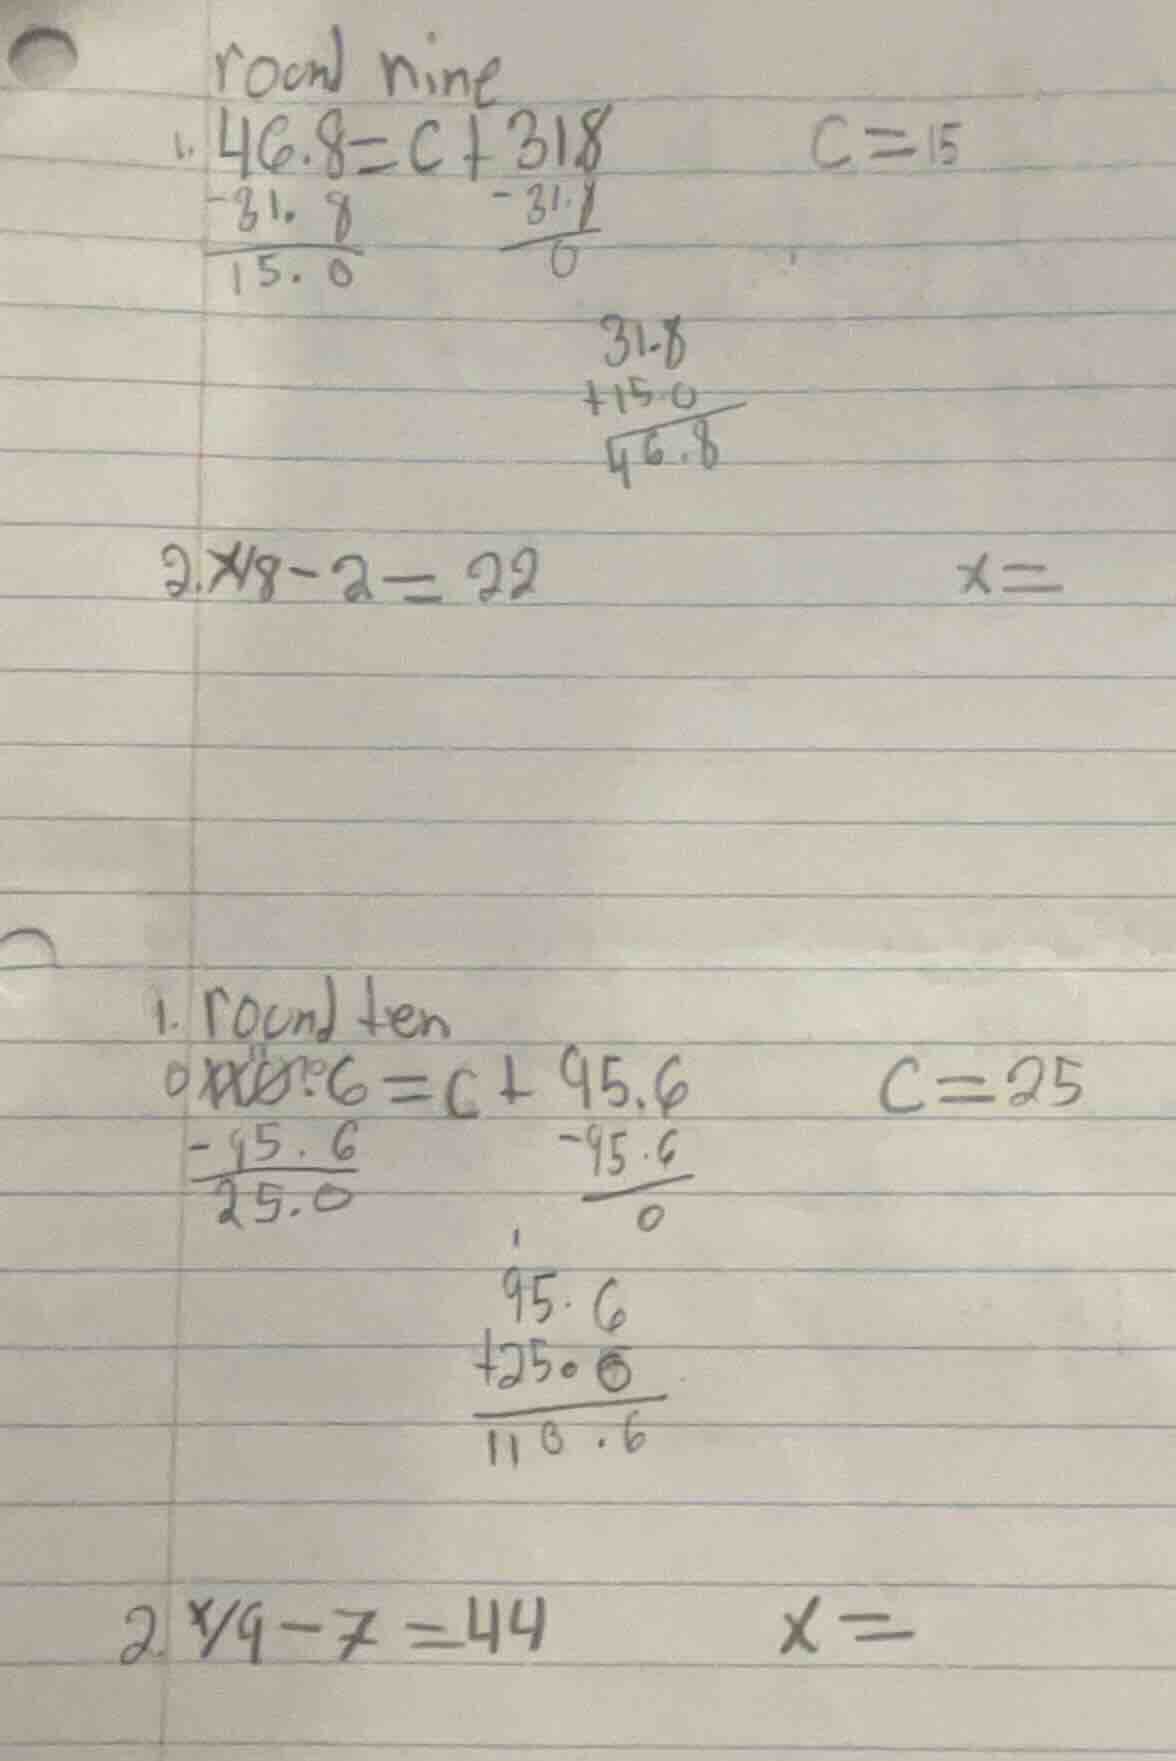 round nine
1. 46.8=C+318 C=15
-31.8 -31.8
15.0 0
31.8
+15.0
46.8
2. x/8-2=22 x=
1. round ten
.6=C+95.6 C=25
-95.6 -95.6
25.0 0
1
95.6
+25.0
110.6
2. x/9-7=44 x=